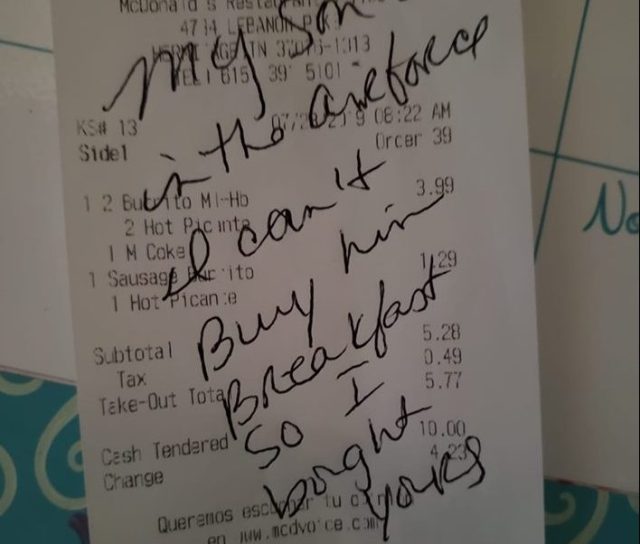 McDonald's Restau
4714 LEBANON PK
TN 37076-1313
TEL 615 391 5101
KS# 13
07/2 2019 08:22 AM
Side1
Order 39
1 2 Burrito Ml-Hb 3.99
2 Hot Picante
1 M Coke
1 Sausage Burrito 1.29
1 Hot Picante
Subtotal 5.28
Tax 0.49
Take-Out Total 5.77
Cash Tendered 10.00
Change 4.23
Queremos escuchar tu
en www.mcdvoice.com
My Son
in the aireforce
I can't
Buy him
Breakfast
So I
bought
yours
No